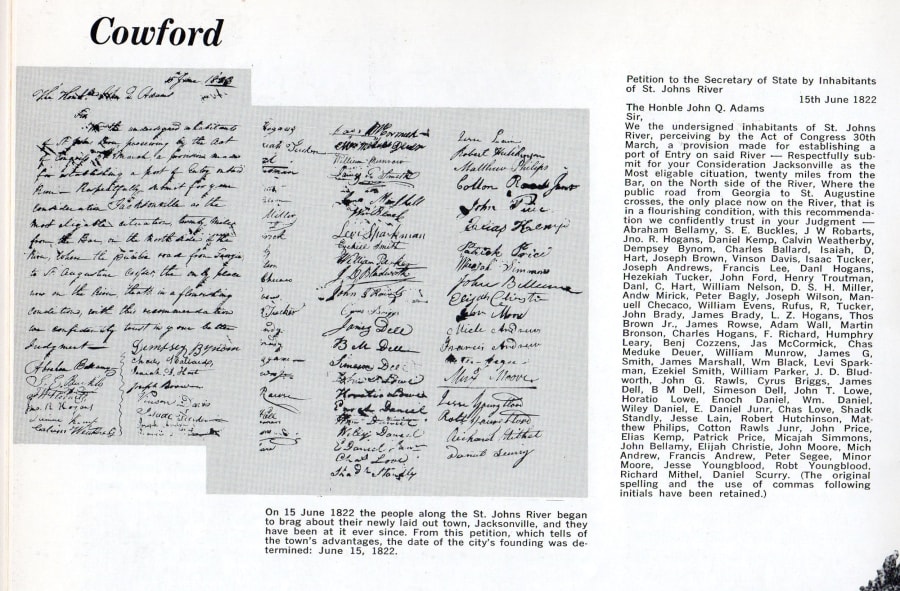 Cowford
15th June 1822
The Honble John Q. Adams
Sir,
We the undersigned inhabitants
of St. Johns River, perceiving by the Act
of Congress 30th March, a provision made
for establishing a port of Entry on said
River — Respectfully submit for your
consideration Jacksonville as the
most eligible cituation, twenty miles
from the Bar, on the North side of the
River, Where the public road from Georgia
to St Augustine crosses, the only place
now on the River, that is in a flourishing
condition, with this recommendation
we confidently trust in your
Judgment —
Abraham Bellamy
S. E. Buckles
J W Robarts
Jno. R. Hogans
Daniel Kemp
Calvin Weatherby
Dempsey Bynom
Charles Ballard
Isaiah D. Hart
Joseph Brown
Vinson Davis
Isaac Tucker
Hogans
Miller
Mirick
Checaco
R Tucker
Brady
Rowse
Jas McCormick
William Munrow
James G Smith
James Marshall
Wm Black
Levi Sparkman
Ezekiel Smith
William Parker
J. D. Bludworth
John G Rawls
Cyrus Briggs
James Dell
B M Dell
Simeson Dell
John T. Lowe
Horatio Lowe
Enoch Daniel
Wm Daniel
Wiley Daniel
E Daniel Junr
Chas Love
Shadk Standly
Jesse Lain
Robert Hutchinson
Matthew Philips
Cotton Rawls Junr
John Price
Elias Kemp
Patrick Price
Micajah Simmons
John Bellamy
Elijah Christie
John Moore
Mich Andrew
Francis Andrew
Peter Segee
Minor Moore
Jesse Youngblood
Robt Youngblood
Richard Mithel
Daniel Scurry
On 15 June 1822 the people along the St. Johns River began
to brag about their newly laid out town, Jacksonville, and they
have been at it ever since. From this petition, which tells of
the town's advantages, the date of the city's founding was de-
termined: June 15, 1822.
Petition to the Secretary of State by Inhabitants
of St. Johns River
15th June 1822
The Honble John Q. Adams
Sir,
We the undersigned inhabitants of St. Johns
River, perceiving by the Act of Congress 30th
March, a provision made for establishing a
port of Entry on said River — Respectfully sub-
mit for your Consideration Jacksonville as the
Most eligable cituation, twenty miles from the
Bar, on the North side of the River, Where the
public road from Georgia to St. Augustine
crosses, the only place now on the River, that is
in a flourishing condition, with this recommenda-
tion we confidently trust in your Judgment —
Abraham Bellamy, S. E. Buckles, J W Robarts,
Jno. R. Hogans, Daniel Kemp, Calvin Weatherby,
Dempsey Bynom, Charles Ballard, Isaiah, D,
Hart, Joseph Brown, Vinson Davis, Isaac Tucker,
Joseph Andrews, Francis Lee, Danl Hogans,
Hezekiah Tucker, John Ford, Henry Troutman,
Danl, C, Hart, William Nelson, D. S. H. Miller,
Andw Mirick, Peter Bagly, Joseph Wilson, Man-
uell Checaco, William Evens, Rufus, R, Tucker,
John Brady, James Brady, L. Z. Hogans, Thos
Brown Jr., James Rowse, Adam Wall, Martin
Bronson, Charles Hogans, F. Richard, Humphry
Leary, Benj Cozzens, Jas McCormick, Chas
Meduke Deuer, William Munrow, James G,
Smith, James Marshall, Wm Black, Levi Spark-
man, Ezekiel Smith, William Parker, J. D. Blud-
worth, John G. Rawls, Cyrus Briggs, James
Dell, B M Dell, Simeson Dell, John T. Lowe,
Horatio Lowe, Enoch Daniel, Wm. Daniel,
Wiley Daniel, E. Daniel Junr, Chas Love, Shadk
Standly, Jesse Lain, Robert Hutchinson, Mat-
thew Philips, Cotton Rawls Junr, John Price,
Elias Kemp, Patrick Price, Micajah Simmons,
John Bellamy, Elijah Christie, John Moore, Mich
Andrew, Francis Andrew, Peter Segee, Minor
Moore, Jesse Youngblood, Robt Youngblood,
Richard Mithel, Daniel Scurry. (The original
spelling and the use of commas following
initials have been retained.)